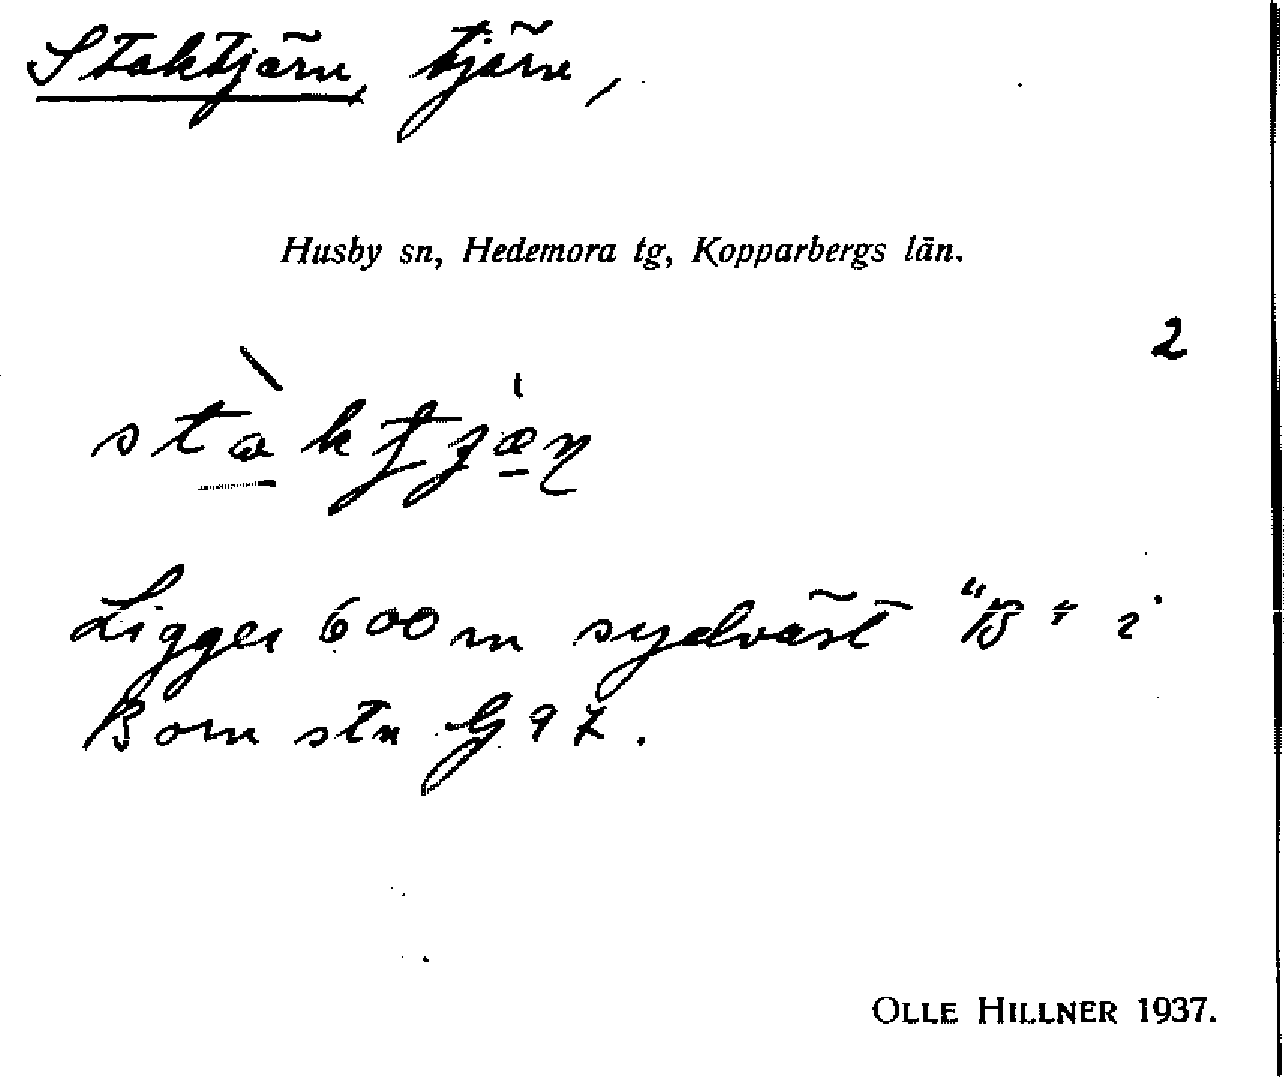 Staktjärn, tjärn,
Husby sn, Hedemora tg, Kopparbergs län.
2
Ligger 600 m sydväst "B" i
Born stn G 9 Z.
OLLE HILLNER 1937.